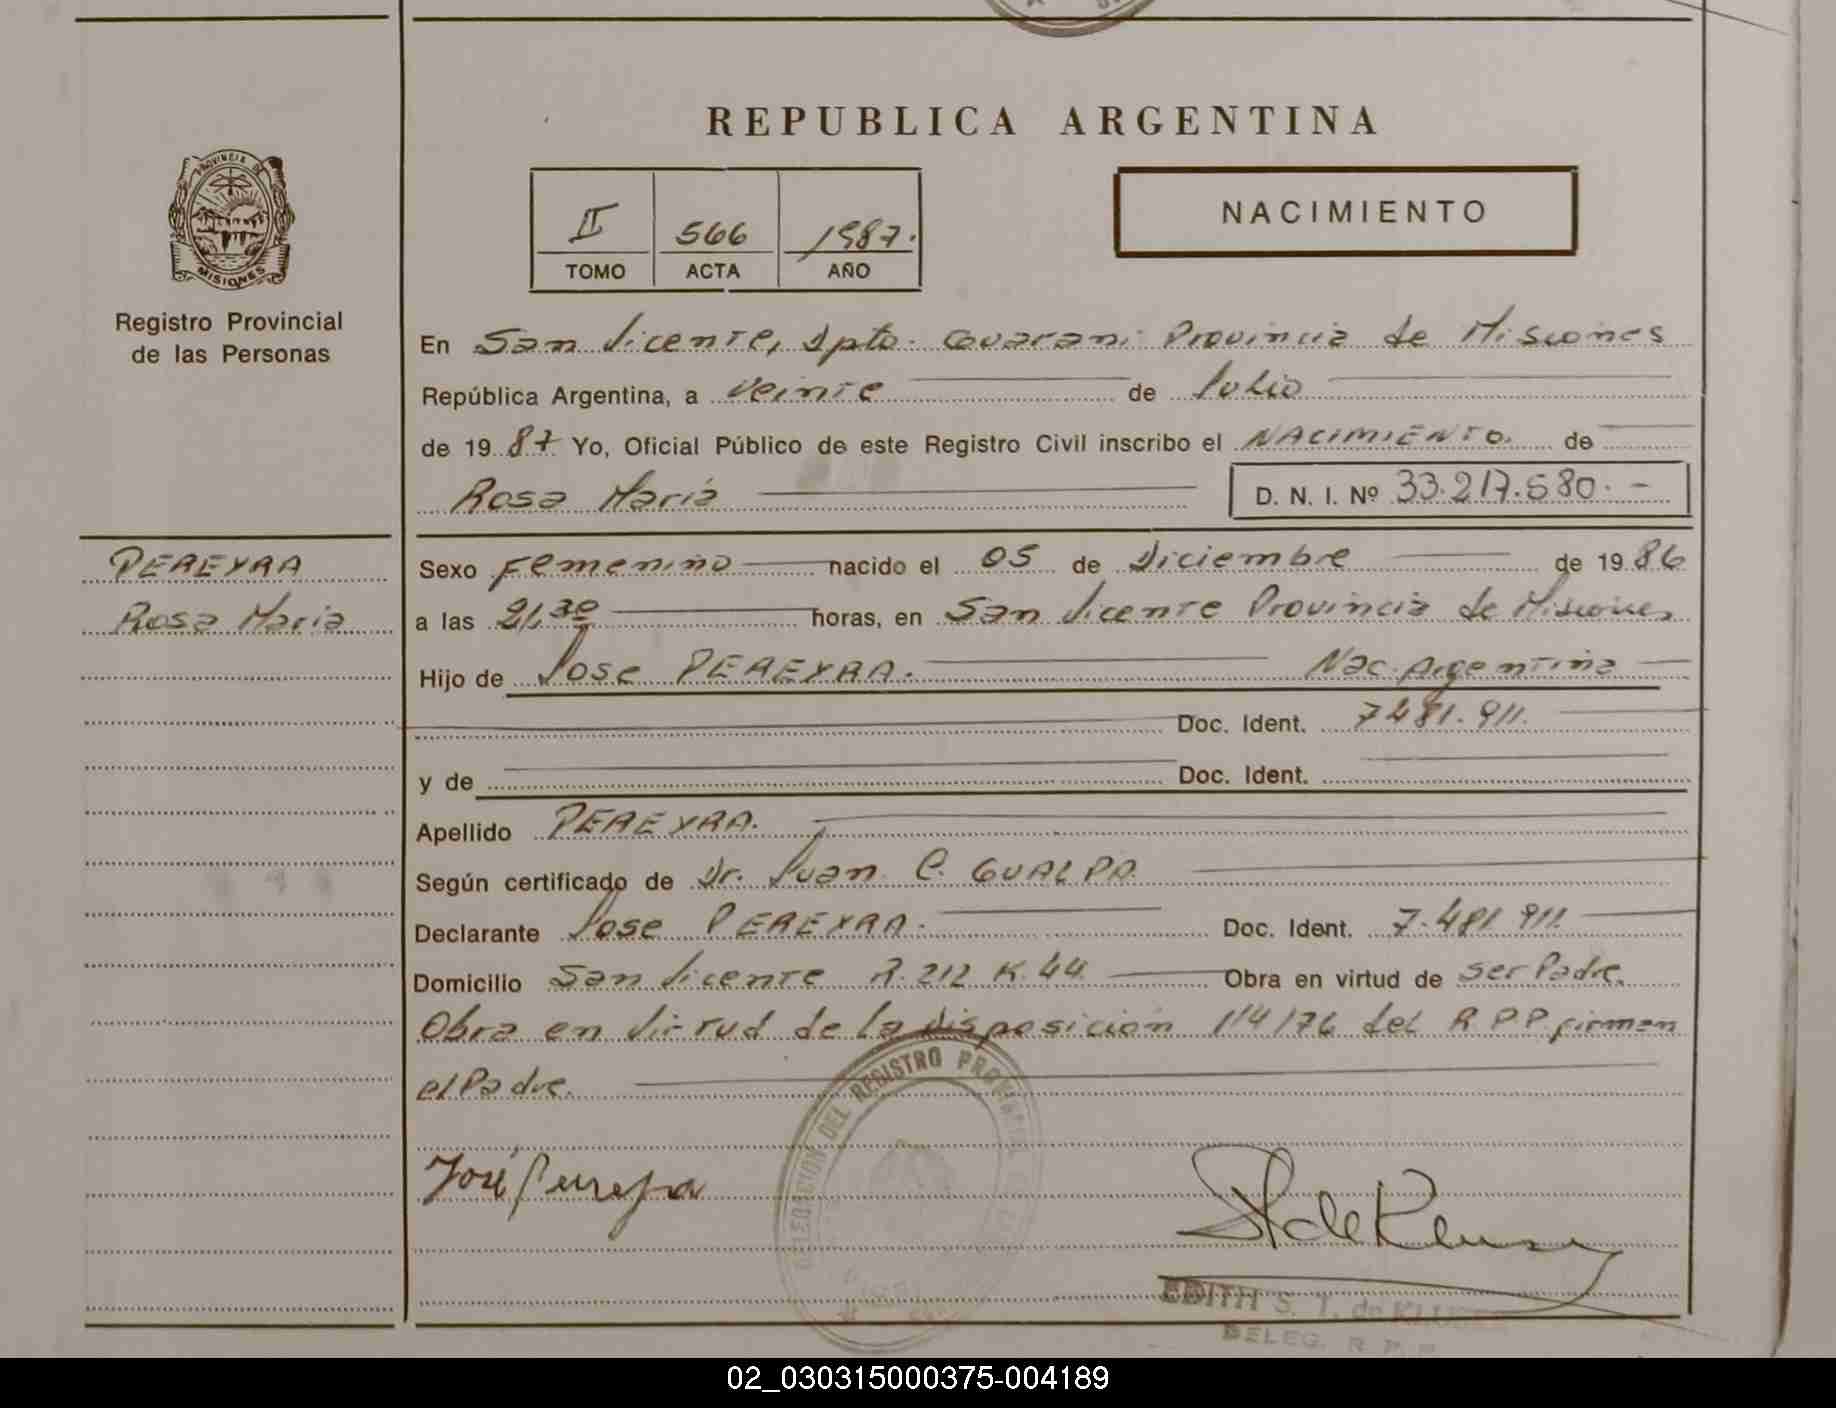 REPUBLICA ARGENTINA
PROVINCIA DE
MISIONES
Registro Provincial
de las Personas
II 566 1987.
TOMO ACTA AÑO
NACIMIENTO
En San Vicente, Dpto. Guarani Provincia de Misiones
República Argentina, a veinte de Julio
de 1987 Yo, Oficial Público de este Registro Civil inscribo el NACIMIENTO. de
Rosa María D. N. I. Nº 33.217.580.-
PEREYRA
Rosa Maria
Sexo Femenino nacido el 05 de Diciembre de 1986
a las 21,30 horas, en San Vicente Provincia de Misiones
Hijo de Jose PEREYRA. Nac. Argentina
Doc. Ident. 7481.911.
y de Doc. Ident.
Apellido PEREYRA.
Según certificado de Dr. Juan C. GUALPA.
Declarante Jose PEREYRA. Doc. Ident. 7.481.911.
Domicilio San Vicente R. 212 K. 44. Obra en virtud de ser Padre.
Obra en virtud de la disposición 114/76 del R P P. firman
el Padre.
DELEGACION DEL REGISTRO PROVINCIAL
José Pereyra
EDITH S. T. de
DELEG. R. P. P.
02_030315000375-004189